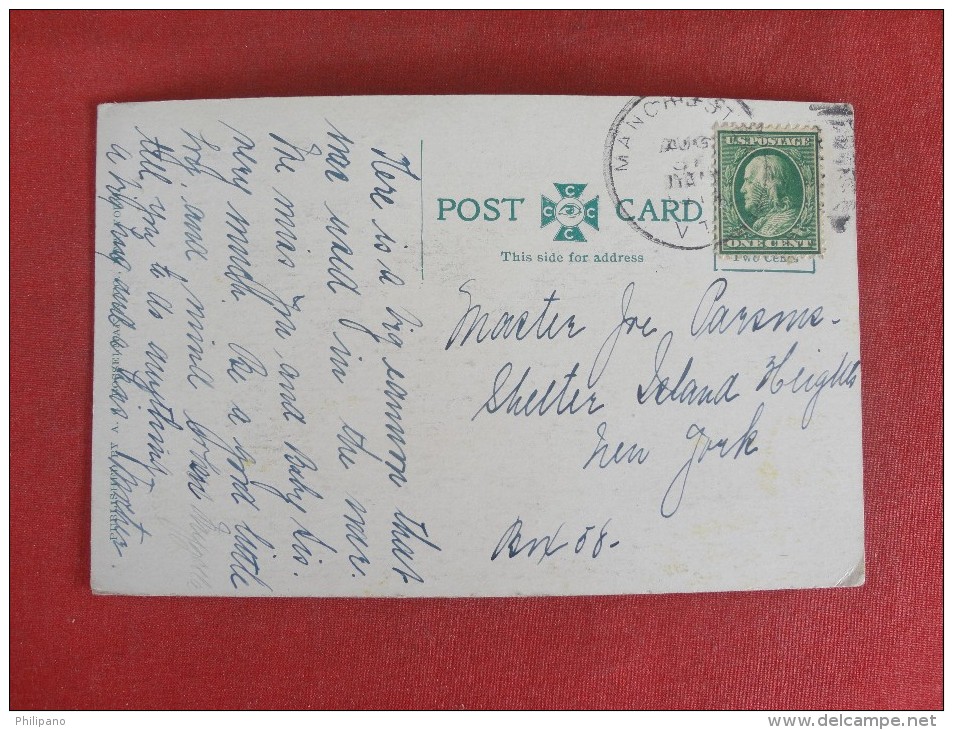 Here is a big cannon that
was used in the war.
We miss you and baby sis.
very much. Be a good little
boy and mind
tell you to do anything.
a big hug and kiss
POST CARD
C C C C
This side for address
MANCHEST
AUG
31
VT
U.S. POSTAGE
ONE CENT
Two Cents
Master Joe Parsons.
Shelter Island Heights
New York
Box 58-
Philipano
www.delcampe.net